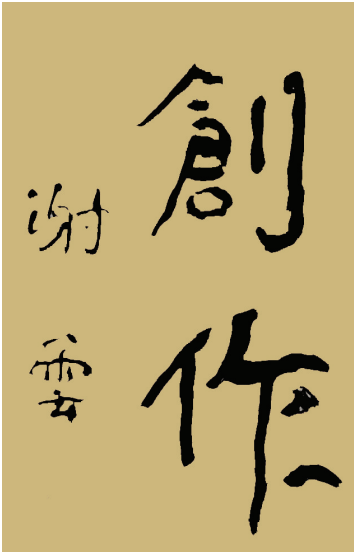 創作
谢雲